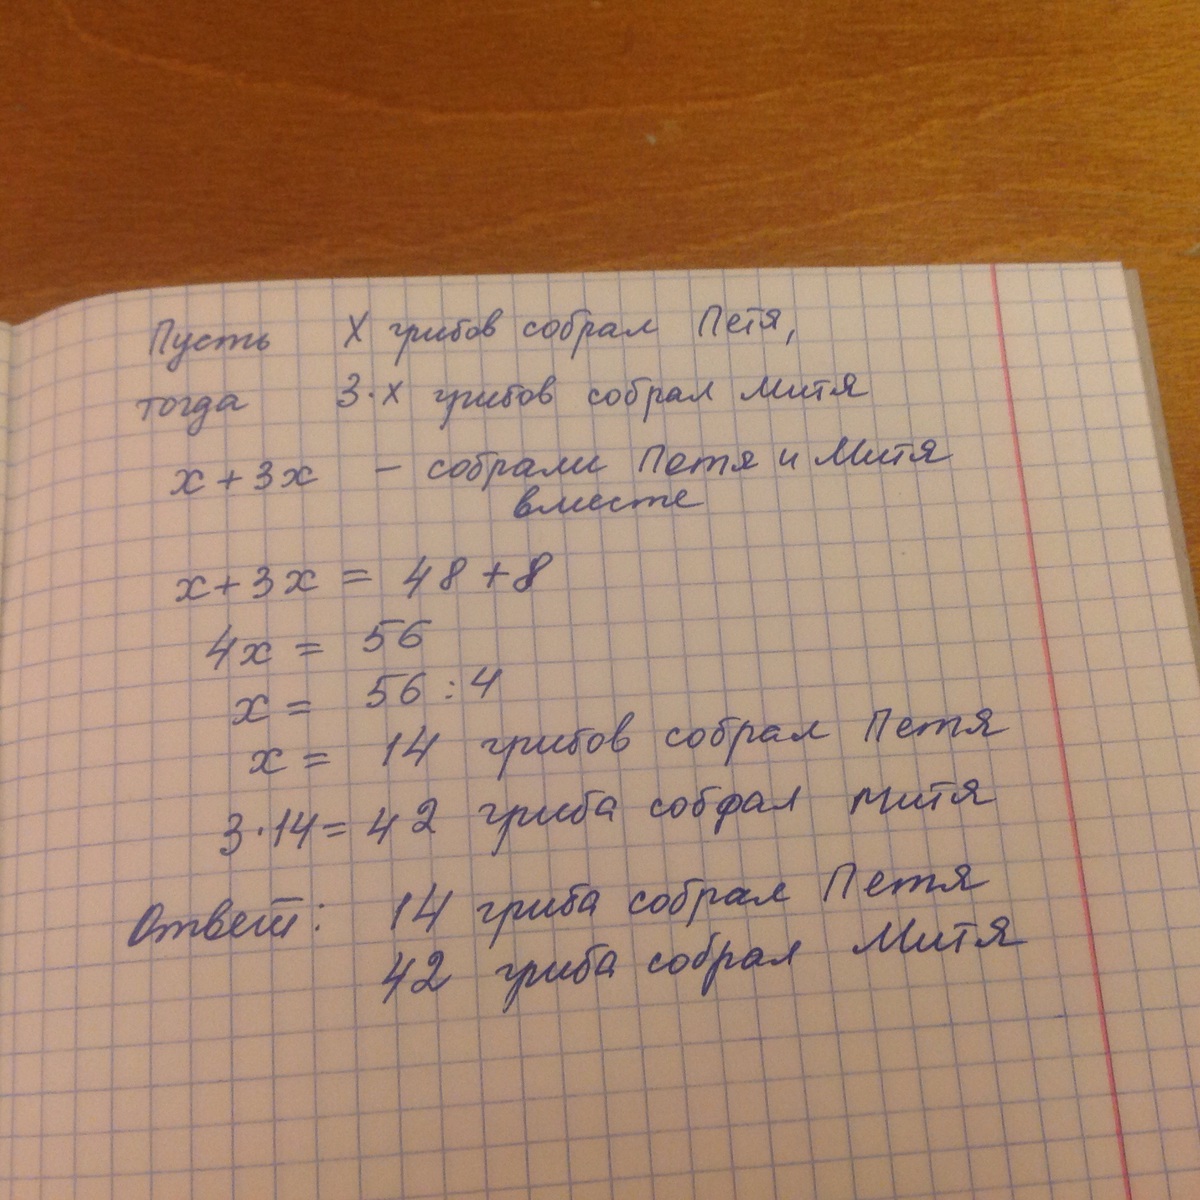 Пусть X грибов собрал Петя,
тогда 3·x грибов собрал Митя
x+3x – собрали Петя и Митя
вместе
x+3x = 48+8
4x = 56
x = 56:4
x = 14 грибов собрал Петя
3·14=42 гриба собрал Митя
Ответ: 14 гриба собрал Петя
42 гриба собрал Митя